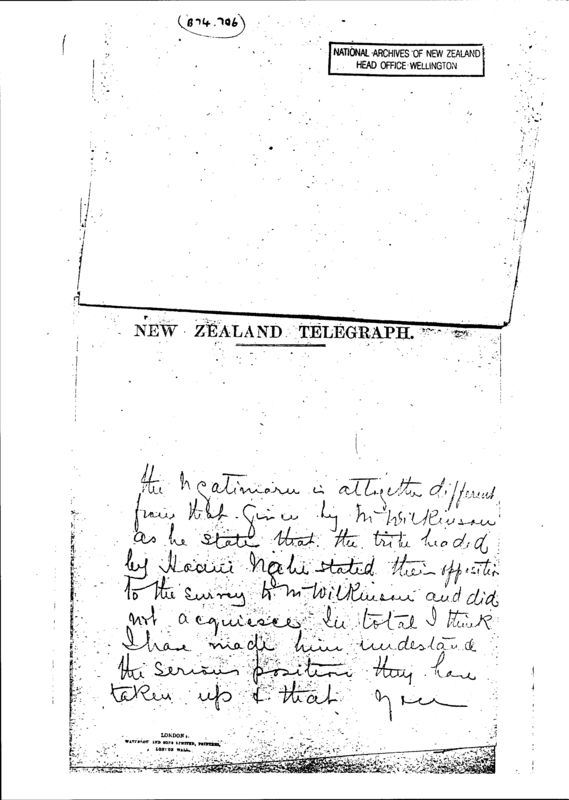 B74.706
NATIONAL ARCHIVES OF NEW ZEALAND
HEAD OFFICE WELLINGTON
NEW ZEALAND TELEGRAPH.
the Ngatimaru is altogether different
from that given by Mr Wilkinson
as he states that the tribe headed
by Nache stated their opposition
to the survey to Mr Wilkinson and did
not acquiesce in total I think
I have made him understand
the serious position they have
taken up & that you
LONDON:
WATERLOW AND SONS LIMITED, PRINTERS,
LONDON WALL.